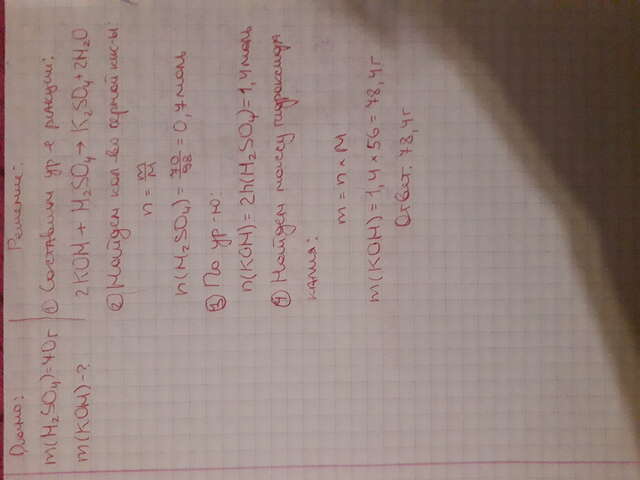 Дано:
m(H₂SO₄)=70г
m(KOH)-?
Решение:
① Составим ур-е реакции:
2KOH + H₂SO₄ → K₂SO₄+2H₂O
② Найдем кол-во серной кис-ы:
n = m/M
n(H₂SO₄) = 70/98 = 0,7моль
③ По ур-ю:
n(KOH) = 2n(H₂SO₄)=1,4моль
④ Найдем массу гидроксида
калия:
m = n × M
m(KOH) = 1,4 × 56 = 78,4г
Ответ: 78,4г